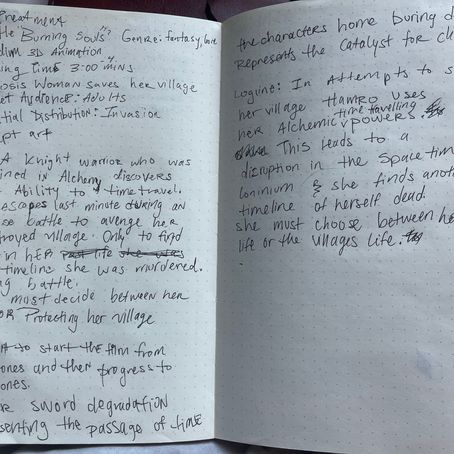 Treatment
tle "Burning Souls"? Genre: fantasy,
dium 3D Animation
ing time 3:00 mins
nosis Woman saves her village
et Audience: Adults
tial Distribution: Invasion
pt art
A Knight warrior who was
ined in Alchemy discovers
Ability to time travel.
escapes last minute during an
se battle to avenge her
troyed village. Only to find
in her past life she was
timeline she was murdered.
ng battle.
must decide between her
OR Protecting her village
to start the film from
ones and then progress to
ones.
re sword degradation
senting the passage of time
the characters home burning d
Represents the Catalyst for ch
Logline: In Attempts to s
her village Hamro uses
her Alchemic time travelling powers.
This leads to a
disruption in the Space time
& she finds anot
timeline of herself dead.
she must choose between he
life or the villages life.